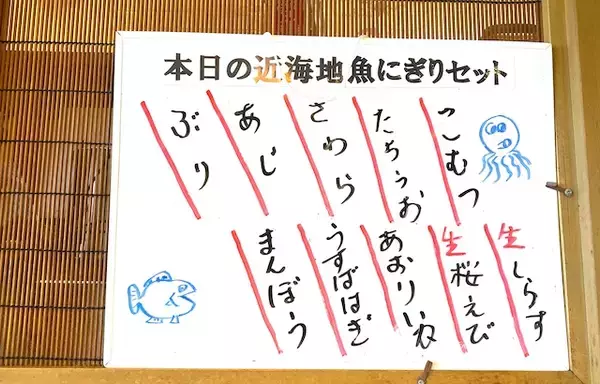 本日の近海地魚にぎりセット
こむつ
たちうお
さわら
あじ
ぶり
生しらす
生桜えび
あおりいか
うすばはぎ
まんぼーう